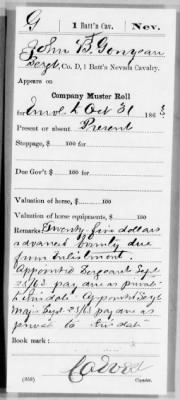 G | 1 Batt's Cav. | Nev.
John B.
Sergt., Co. D, 1 Batt's Nevada Cavalry.
Appears on
Company Muster Roll
for Enrol. to Oct 31, 1863.
Present or absent Present
Stoppage, $ 100 for
Due Gov't $ 100 for
Valuation of horse, $ 100
Valuation of horse equipments, $ 100
Remarks: Twenty five dollars
advanced bounty due
from Enlistment.
Appointed Sergeant Sept
25/63 pay due as private
to this date. Appointed Sergt
Maj Sept 25/63 pay due as
private to this date
Book mark:
(358)
Copyist.